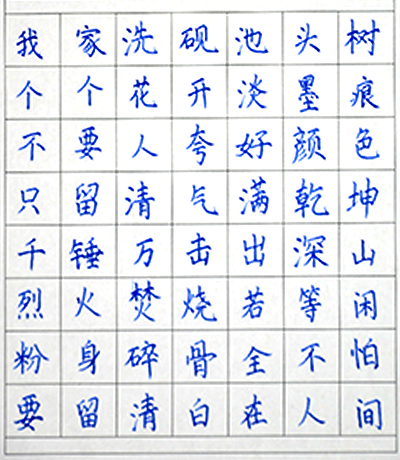 我家洗砚池头树
个个花开淡墨痕
不要人夸好颜色
只留清气满乾坤
千锤万击出深山
烈火焚烧若等闲
粉身碎骨全不怕
要留清白在人间